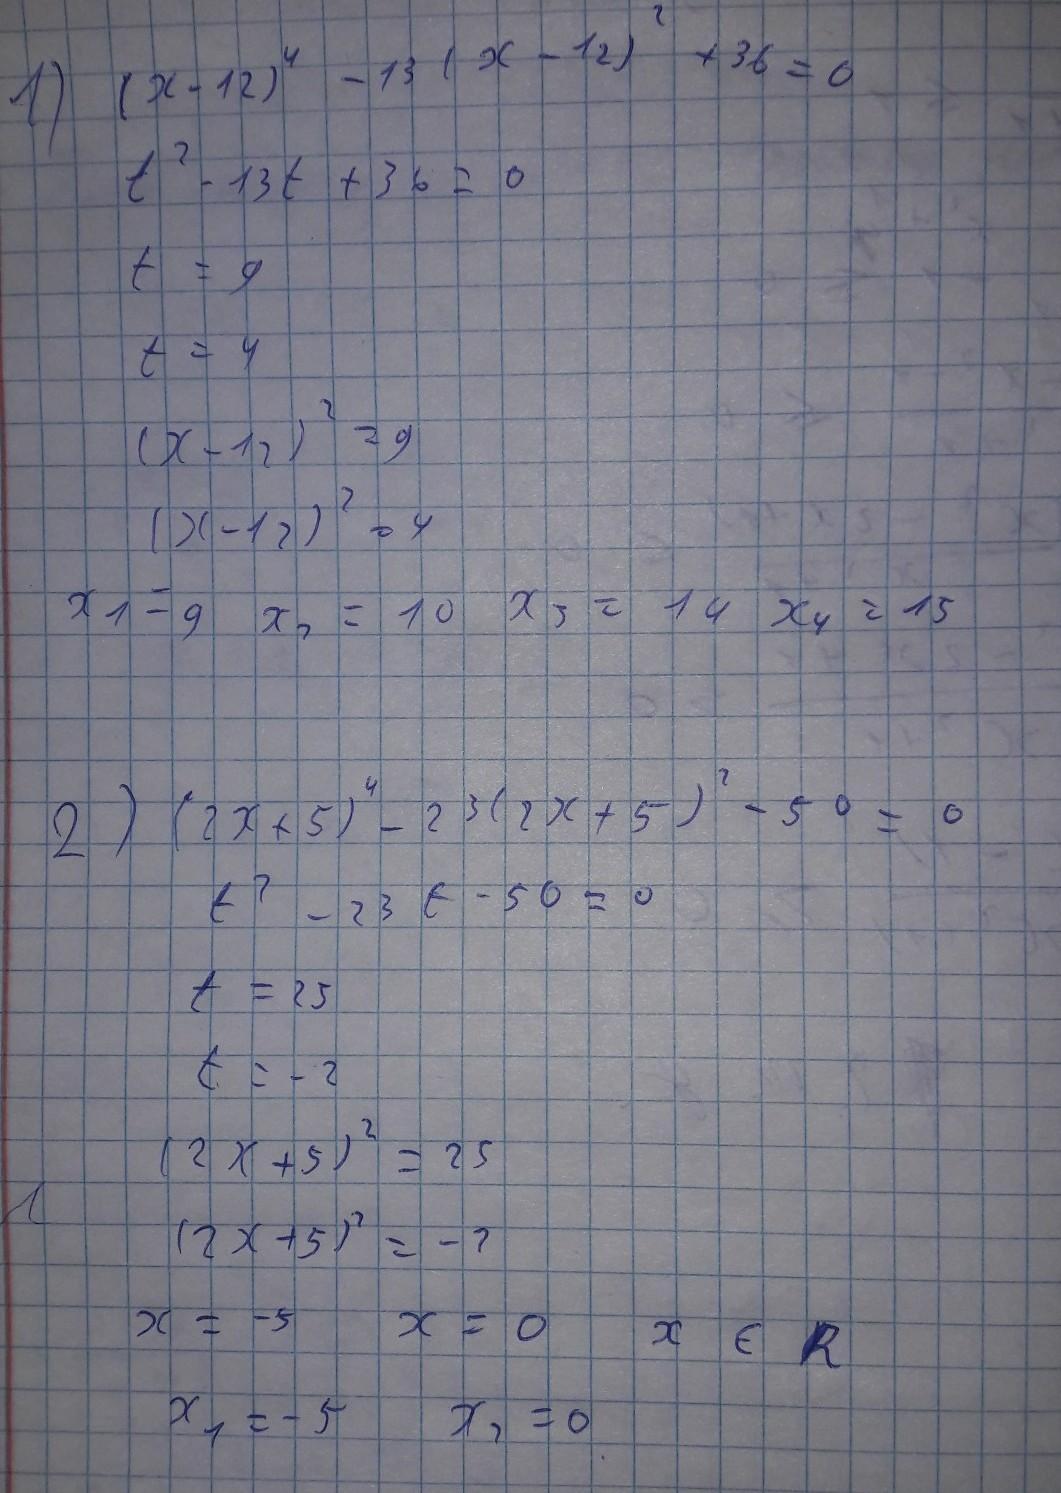 1) (x-12)⁴ -13(x-12)² +36=0
t² -13t +36=0
t = 9
t = 4
(x-12)² =9
(x-12)² =4
x1=9 x2 = 10 x3 = 14 x4 = 15
2) (2x+5)⁴ -23(2x+5)² -50 = 0
t² -23t -50=0
t =25
t =-2
(2x+5)² = 25
1
(2x+5)² = -2
x = -5 x = 0 x ∈ R
x1 =-5 x2 =0